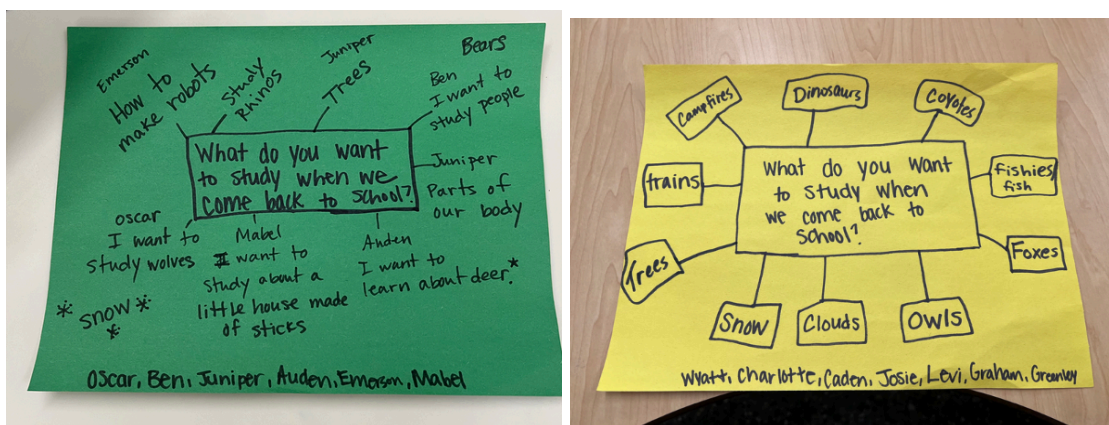 Emerson
How to
make robots
Study
Rhinos
Juniper
Trees
Bears
Ben
I want to
study people
What do you want
to study when we
come back to school?
Juniper
Parts of
our body
Oscar
I want to
study wolves
Mabel
I want to
study about a
little house made
of sticks
Auden
I want to
learn about deer.*
* snow *
*
Oscar, Ben, Juniper, Auden, Emerson, Mabel
Campfires
Dinosaurs
Coyotes
trains
What do you want
to study when
we come back to
school?
fishies/
fish
Trees
Foxes
Snow
Clouds
Owls
Wyatt, Charlotte, Caden, Josie, Levi, Graham, Greenley